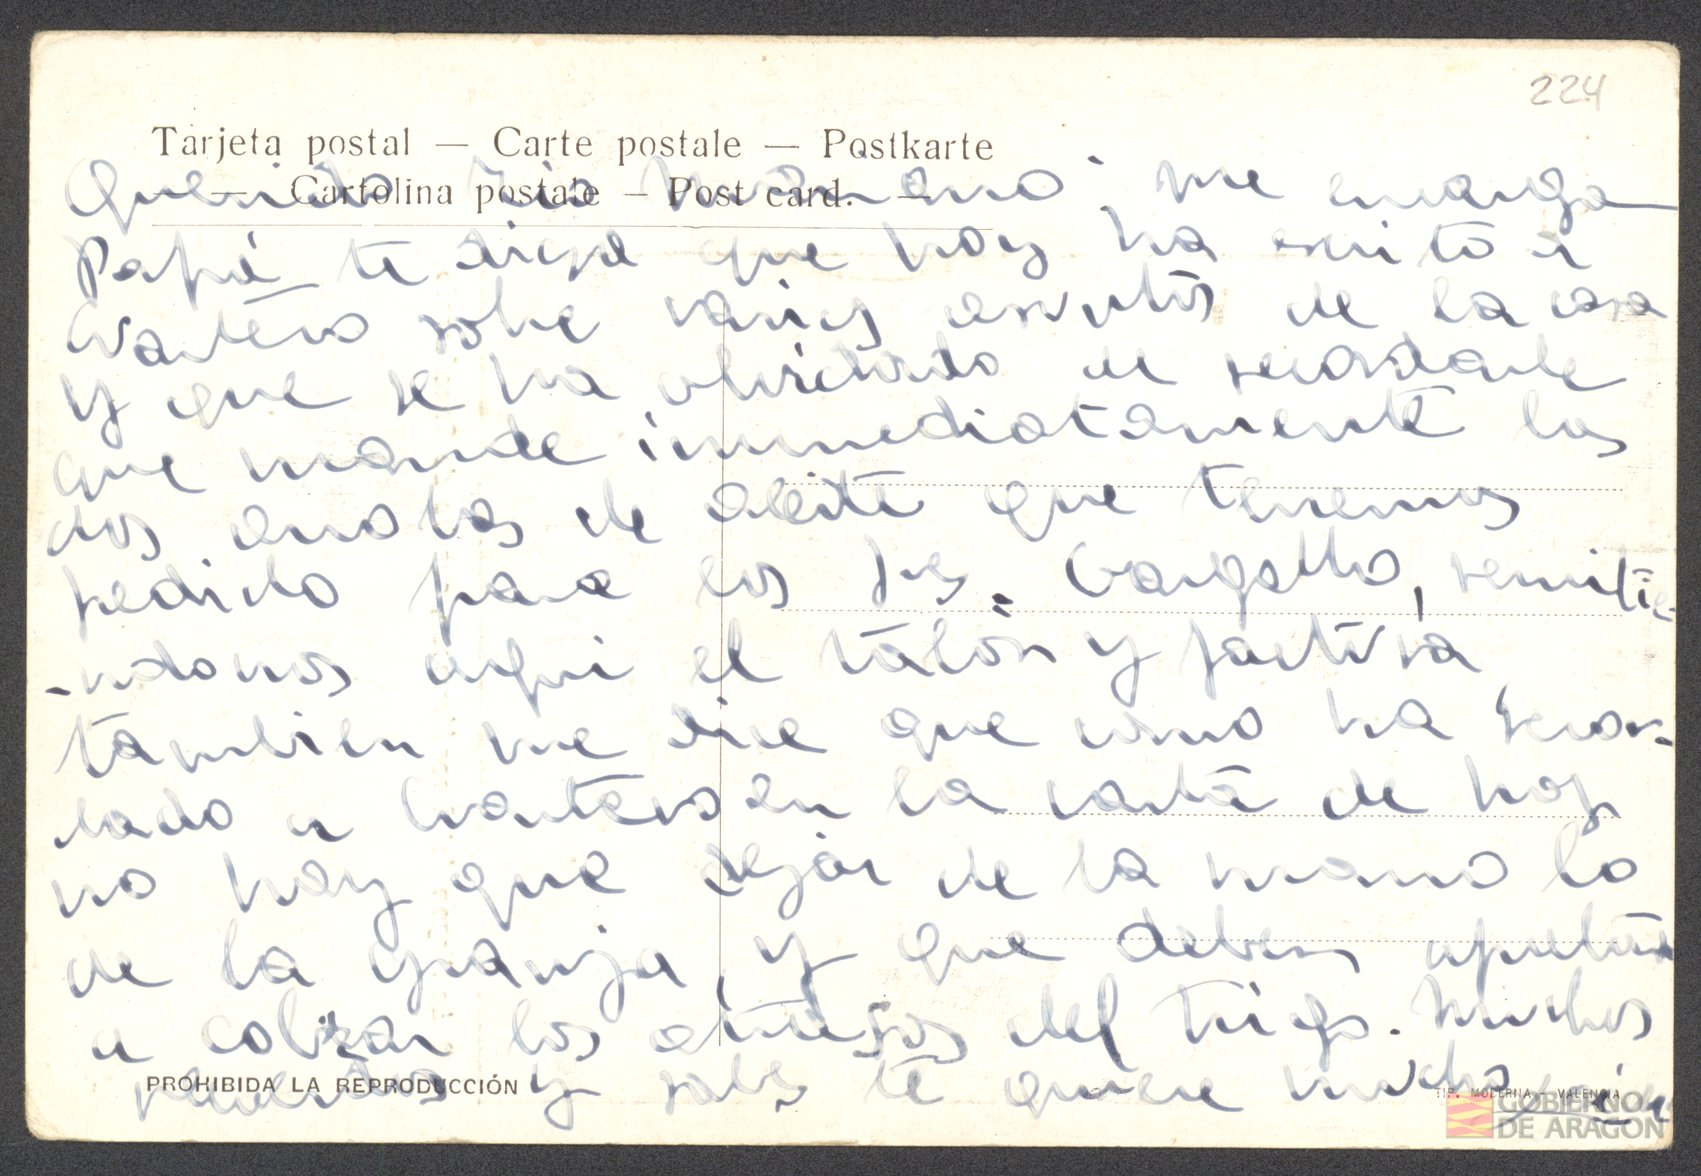 224
Tarjeta postal — Carte postale — Postkarte
— Cartolina postale — Post card. —
Querido tio Mariano: me encarga
Papá te diga que hoy ha escrito a
sobre varios asuntos de la casa
y que se ha olvidado de recordarle
que mande inmediatamente las
dos de aceite que tenemos
pedido para los Sres. Gargallo, remitie-
-ndonos aqui el talón y factura,
tambien me dice que como ha recor-
dado a en la carta de hoy
no hay que dejar de la mano lo
de la granja, y que deben
a cobrar los atrasos del trigo. Muchos
recuerdos y sabes te quiere mucho
PROHIBIDA LA REPRODUCCIÓN
TIP. MODERNA - VALENCIA
GOBIERNO
DE ARAGON